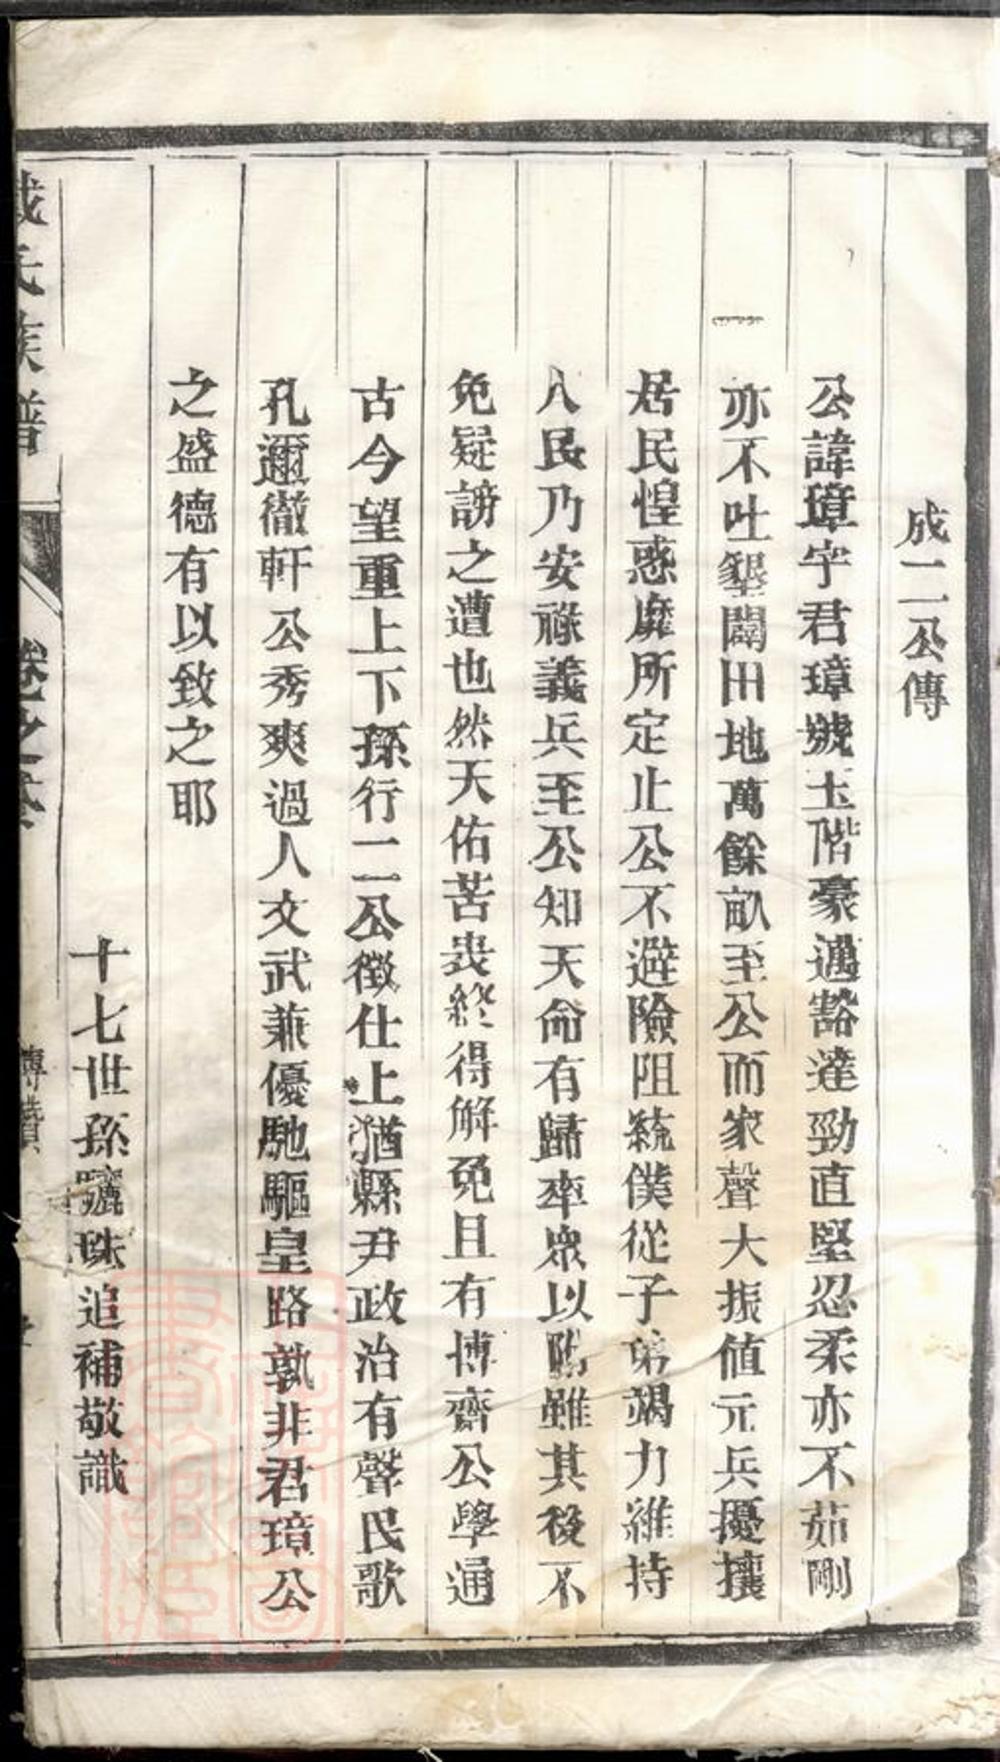 成二公傳
公諱璋字君璋號玉階豪邁豁達勁直堅忍柔亦不茹剛
亦不吐墾闢田地萬餘畝至公而家聲大振值元兵擾攘
居民惶惑靡所定止公不避險阻統僕從子弟竭力維持
人民乃安祿義兵至公知天命有歸率眾以附雖其後不
免疑謗之遭也然天佑苦衷終得解免且有博齋公學通
古今望重上下孫行二公徵仕上猶縣尹政治有聲民歌
孔邇徹軒公秀爽過人文武兼優馳驅皇路孰非君璋公
之盛德有以致之耶
十七世孫驪珠追補敬識
氏族譜
卷之
傳贊